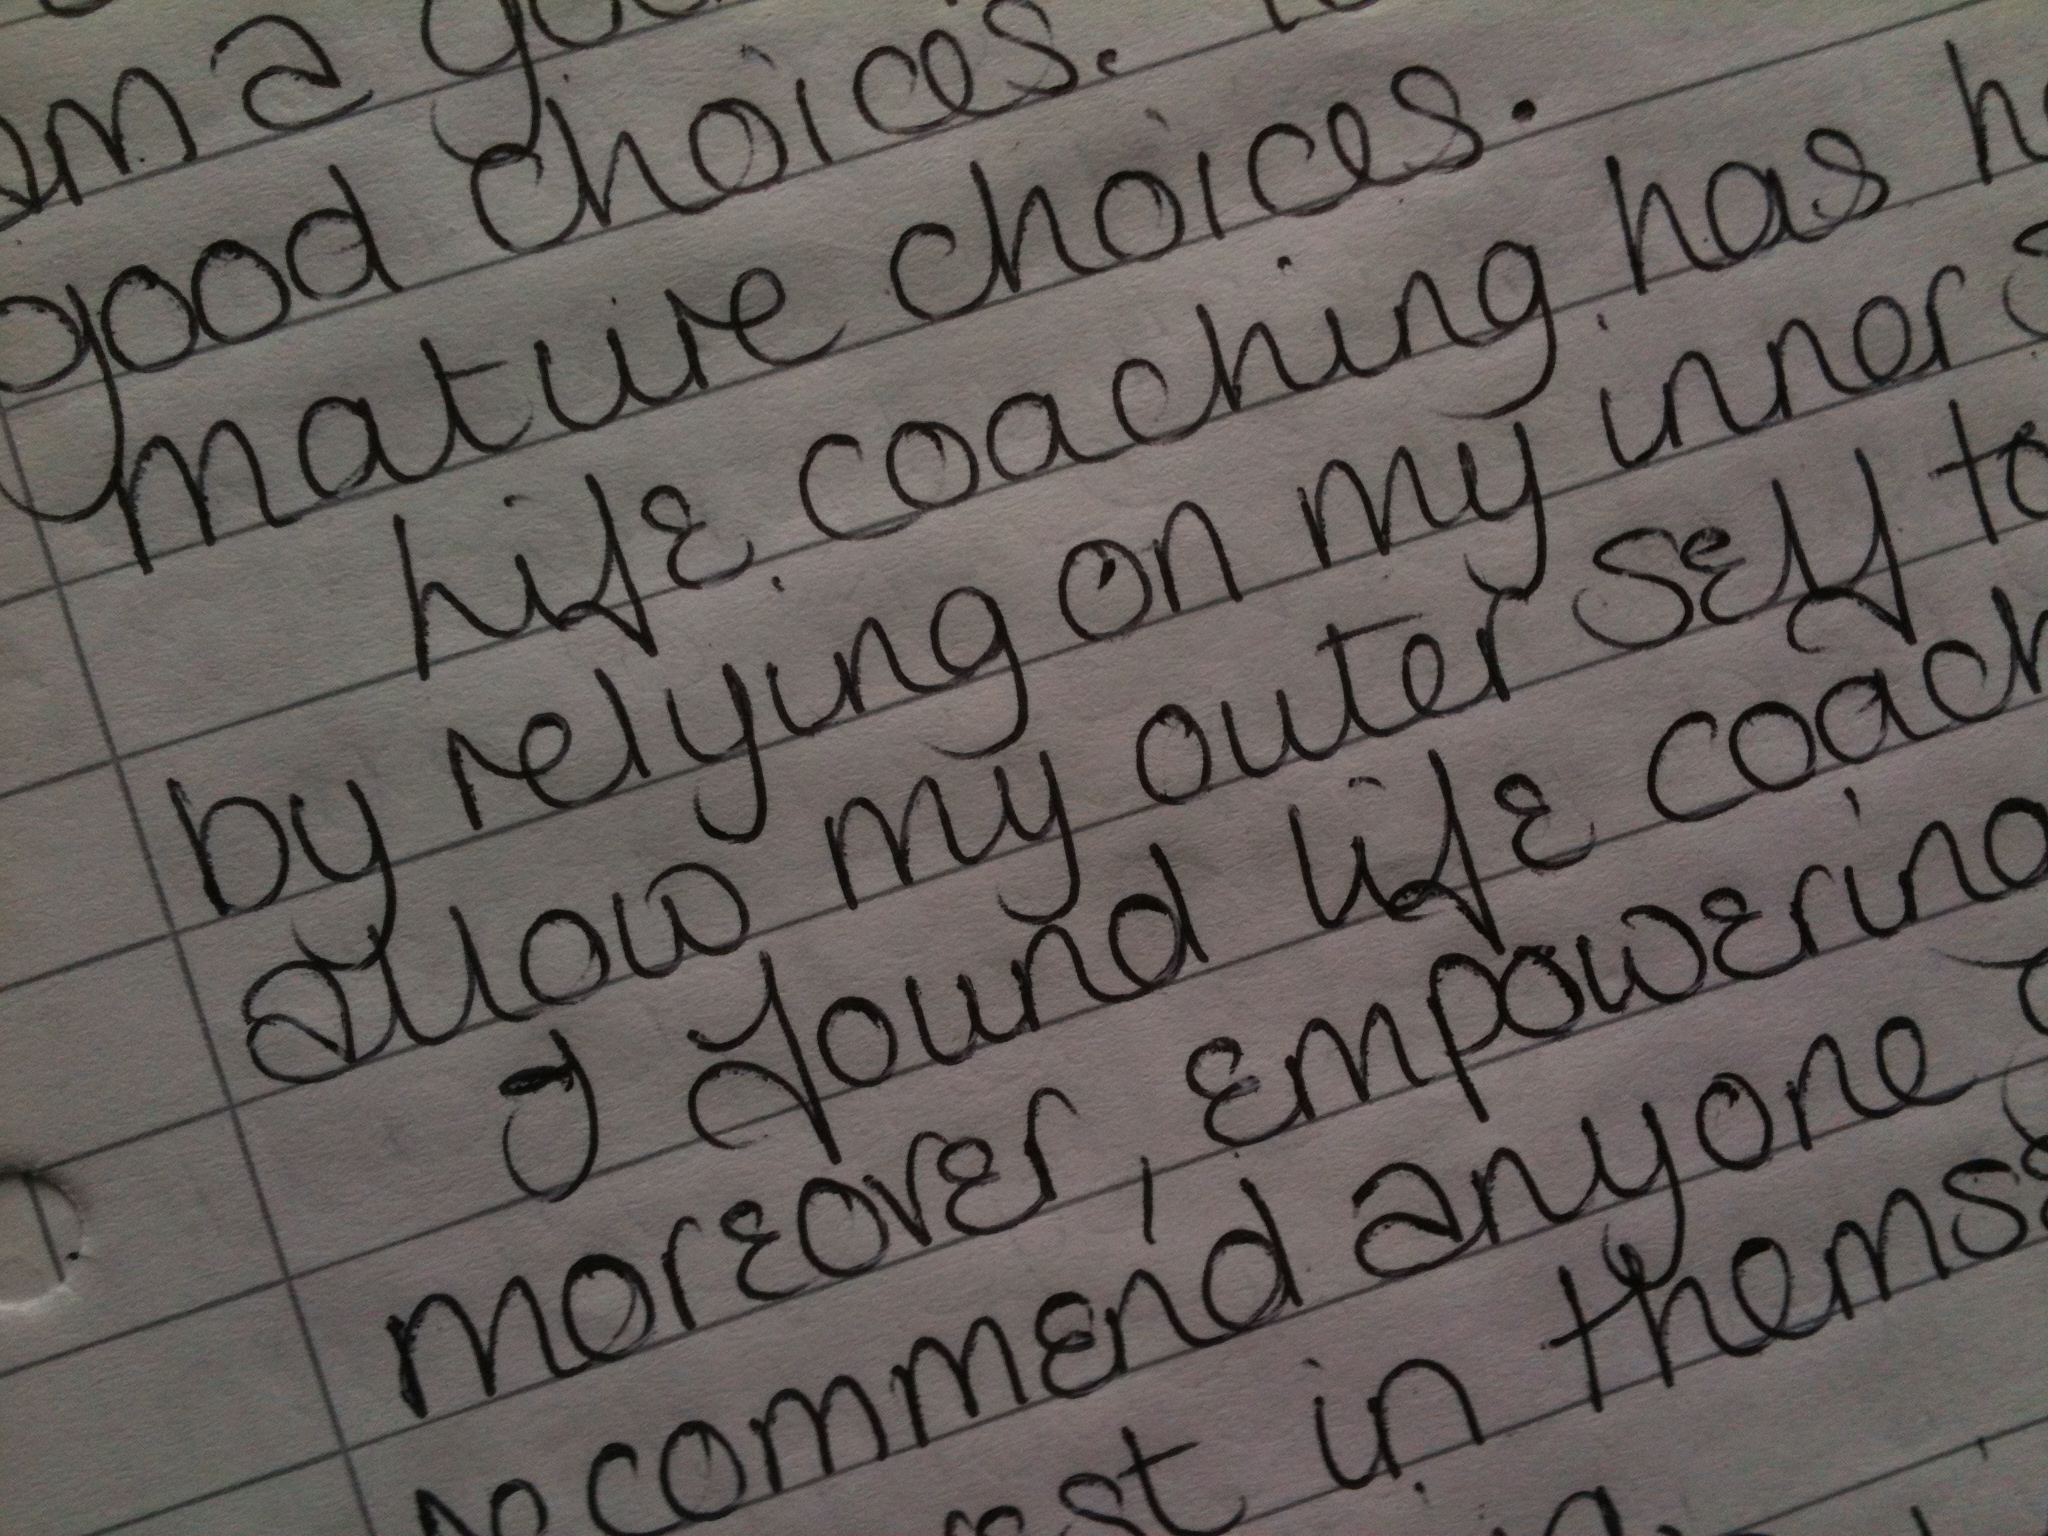 good choices.
mature choices.
Life coaching has
by relying on my inner
allow my outer self to
I found life coach
moreover, empowering
recommend anyone
in themse